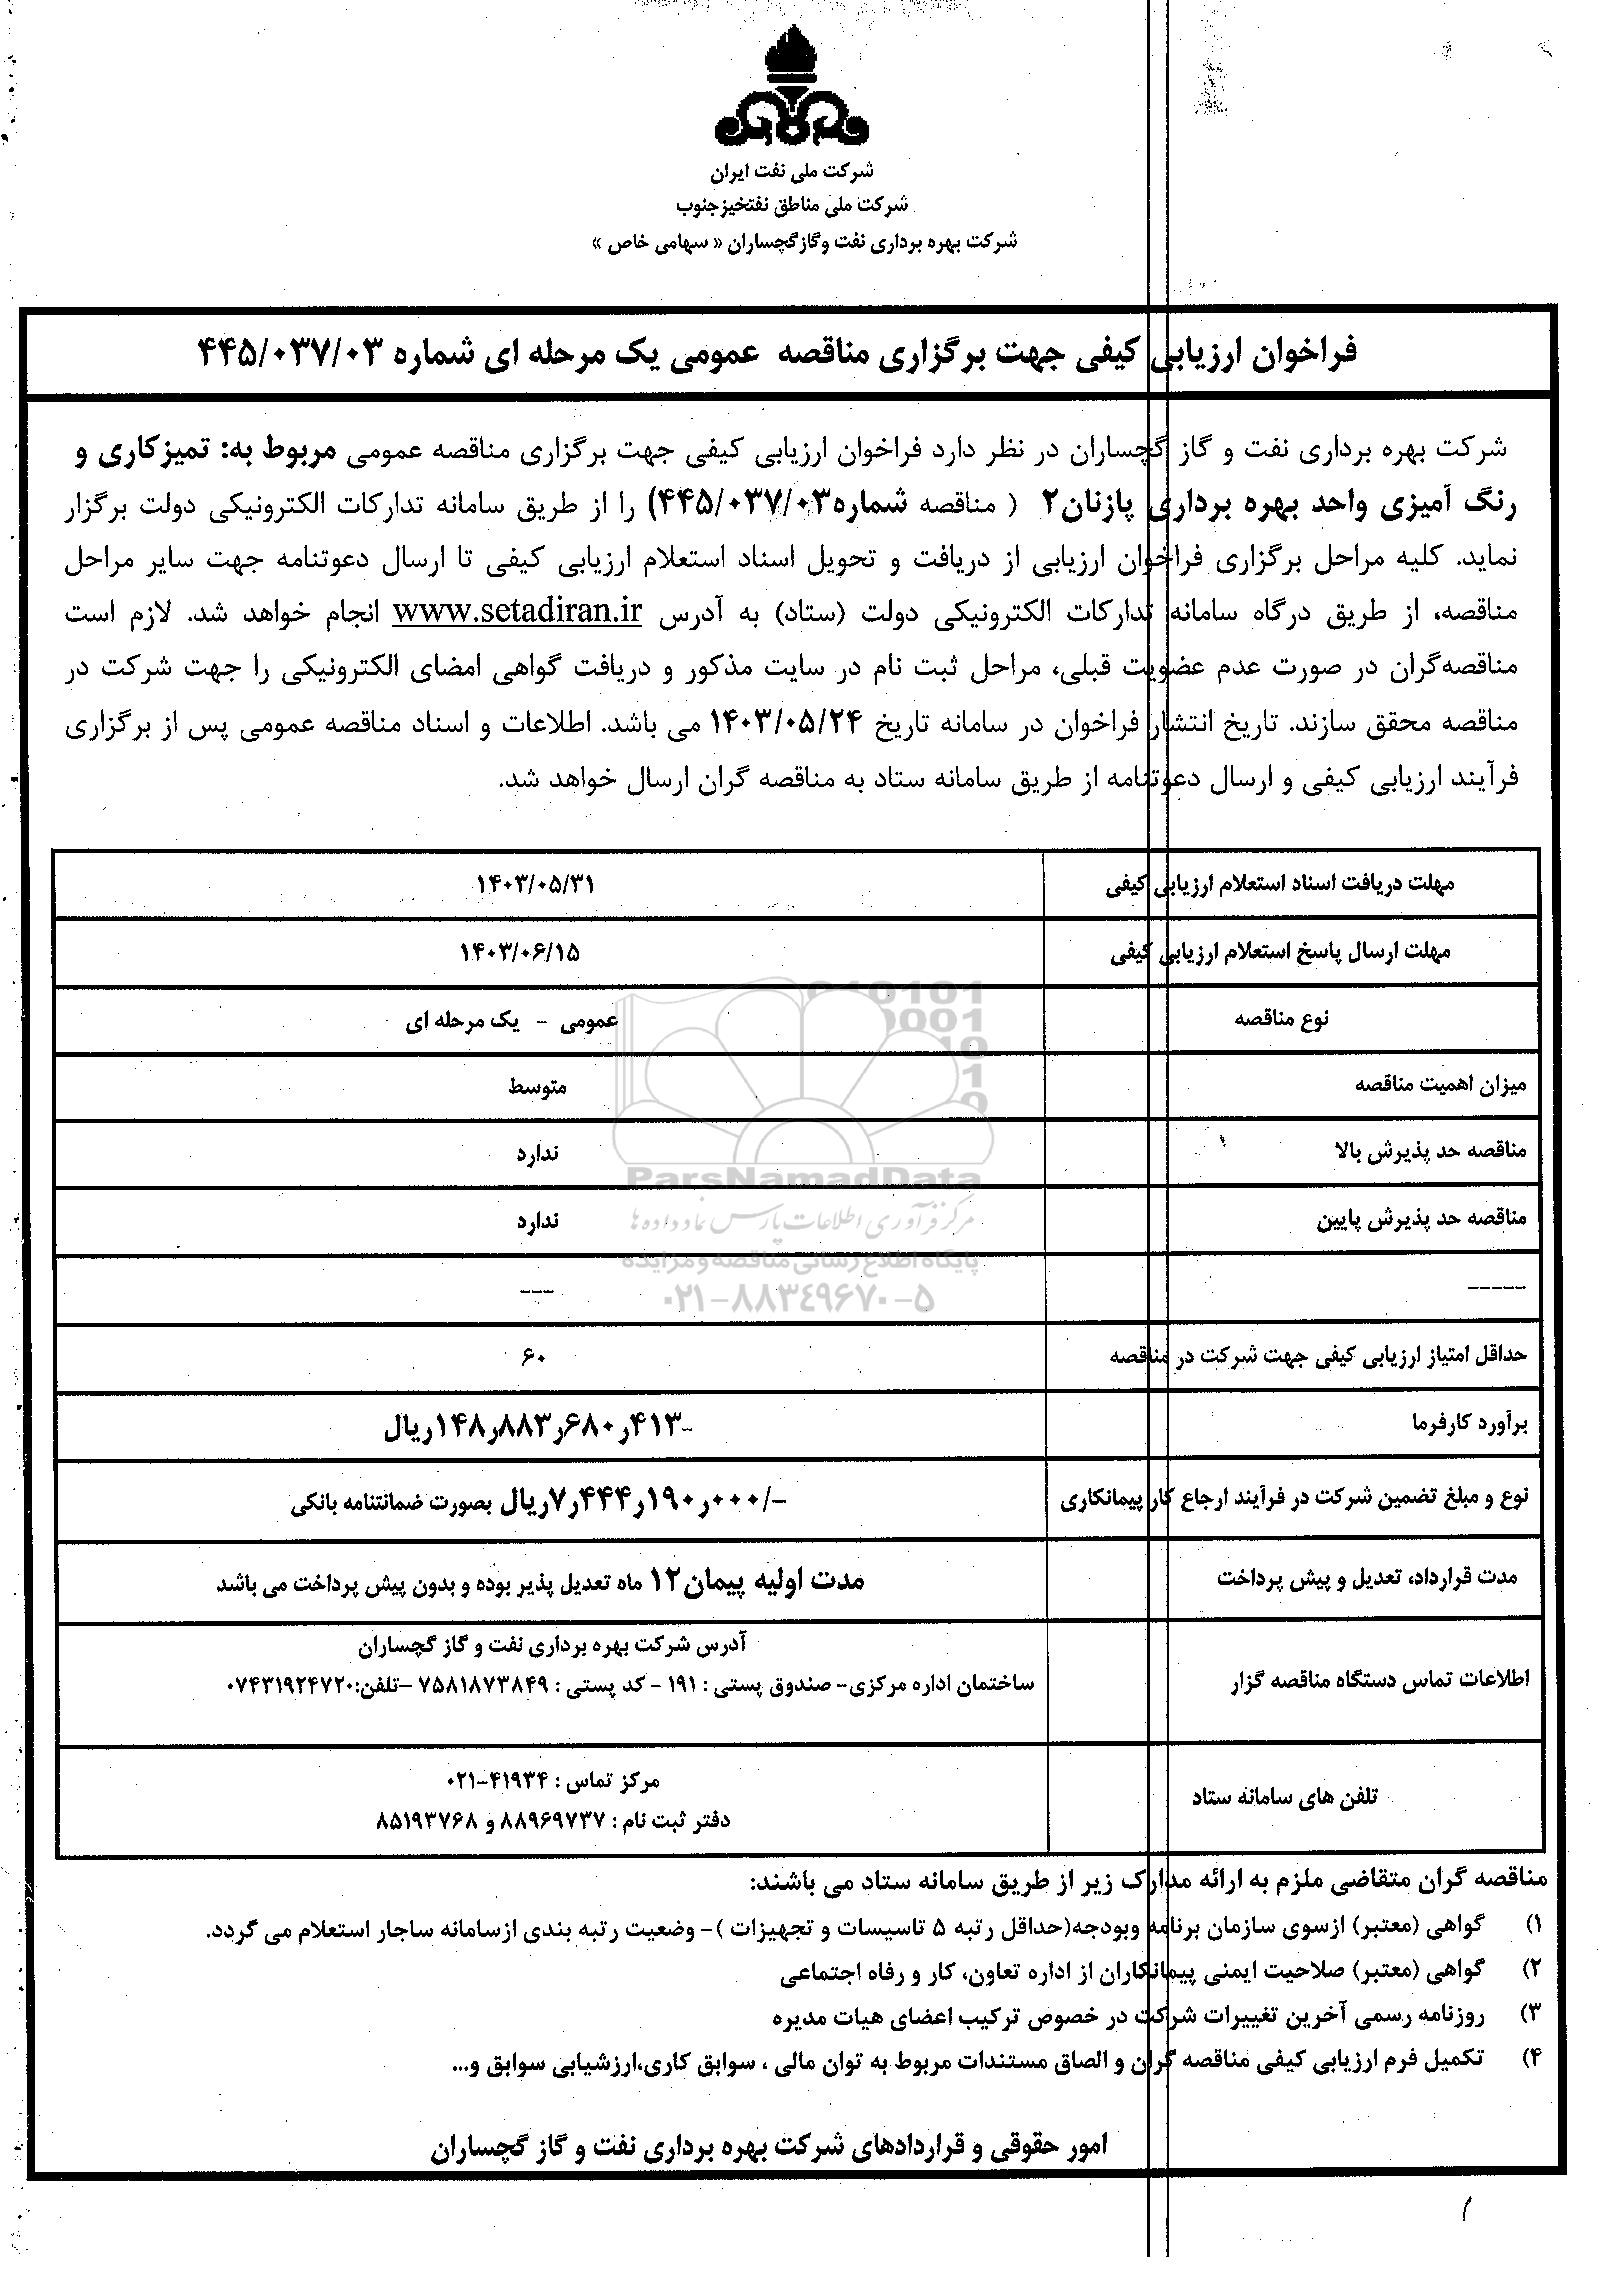 شرکت ملی نفت ایران
شرکت ملی مناطق نفتخیزجنوب
شرکت بهره برداری نفت وگازگچساران « سهامی خاص »
فراخوان ارزیابی کیفی جهت برگزاری مناقصه عمومی یک مرحله ای شماره ۴۴۵/۰۳۷/۰۳
شرکت بهره برداری نفت و گاز گچساران در نظر دارد فراخوان ارزیابی کیفی جهت برگزاری مناقصه عمومی مربوط به: تمیزکاری و
رنگ آمیزی واحد بهره برداری پازنان۲ ( مناقصه شماره۴۴۵/۰۳۷/۰۳) را از طریق سامانه تدارکات الکترونیکی دولت برگزار
نماید. کلیه مراحل برگزاری فراخوان ارزیابی از دریافت و تحویل اسناد استعلام ارزیابی کیفی تا ارسال دعوتنامه جهت سایر مراحل
مناقصه، از طریق درگاه سامانه تدارکات الکترونیکی دولت (ستاد) به آدرس www.setadiran.ir انجام خواهد شد. لازم است
مناقصه‌گران در صورت عدم عضویت قبلی، مراحل ثبت نام در سایت مذکور و دریافت گواهی امضای الکترونیکی را جهت شرکت در
مناقصه محقق سازند. تاریخ انتشار فراخوان در سامانه تاریخ ۱۴۰۳/۰۵/۲۴ می باشد. اطلاعات و اسناد مناقصه عمومی پس از برگزاری
فرآیند ارزیابی کیفی و ارسال دعوتنامه از طریق سامانه ستاد به مناقصه گران ارسال خواهد شد.
مهلت دریافت اسناد استعلام ارزیابی کیفی ۱۴۰۳/۰۵/۳۱
مهلت ارسال پاسخ استعلام ارزیابی کیفی ۱۴۰۳/۰۶/۱۵
نوع مناقصه عمومی - یک مرحله ای
میزان اهمیت مناقصه متوسط
مناقصه حد پذیرش بالا ندارد
مناقصه حد پذیرش پایین ندارد
----- ---
حداقل امتیاز ارزیابی کیفی جهت شرکت در مناقصه ۶۰
برآورد کارفرما -۱۴۸ر۸۸۳ر۶۸۰ر۴۱۳ریال
نوع و مبلغ تضمین شرکت در فرآیند ارجاع کار پیمانکاری -/۷ر۴۴۴ر۱۹۰ر۰۰۰ریال بصورت ضمانتنامه بانکی
مدت قرارداد، تعدیل و پیش پرداخت مدت اولیه پیمان۱۲ ماه تعدیل پذیر بوده و بدون پیش پرداخت می باشد
اطلاعات تماس دستگاه مناقصه گزار آدرس شرکت بهره برداری نفت و گاز گچساران
ساختمان اداره مرکزی- صندوق پستی : ۱۹۱ - کد پستی : ۷۵۸۱۸۷۳۸۴۹ –تلفن:۰۷۴۳۱۹۲۴۷۲۰
تلفن های سامانه ستاد مرکز تماس : ۴۱۹۳۴-۰۲۱
دفتر ثبت نام : ۸۸۹۶۹۷۳۷ و ۸۵۱۹۳۷۶۸
مناقصه گران متقاضی ملزم به ارائه مدارک زیر از طریق سامانه ستاد می باشند:
۱) گواهی (معتبر) ازسوی سازمان برنامه وبودجه(حداقل رتبه ۵ تاسیسات و تجهیزات )- وضعیت رتبه بندی ازسامانه ساجار استعلام می گردد.
۲) گواهی (معتبر) صلاحیت ایمنی پیمانکاران از اداره تعاون، کار و رفاه اجتماعی
۳) روزنامه رسمی آخرین تغییرات شرکت در خصوص ترکیب اعضای هیات مدیره
۴) تکمیل فرم ارزیابی کیفی مناقصه گران و الصاق مستندات مربوط به توان مالی ، سوابق کاری،ارزشیابی سوابق و...
امور حقوقی و قراردادهای شرکت بهره برداری نفت و گاز گچساران
ParsNamadData
مرکز فرآوری اطلاعات پارس نماد داده ها
پایگاه اطلاع رسانی مناقصه و مزایده
۰۲۱-۸۸۳٤۹۶۷۰-۵